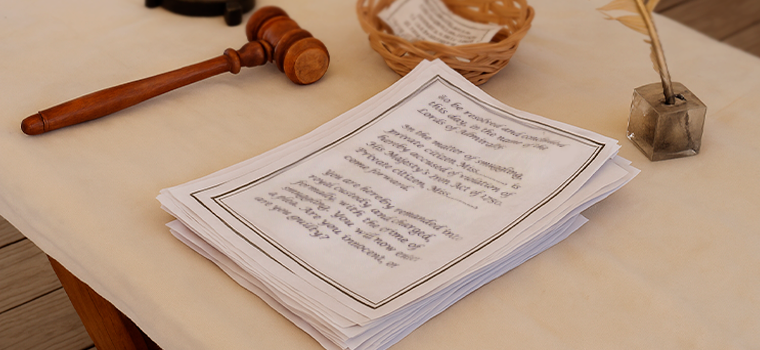 so be resolved and confirmed
this day, in the name of the
Lords of Admiralty
on the matter of smuggling,
private citizen Miss is
hereby accused of violation of
His Majesty's Act of 1750.
Private citizen, Miss
come forward.
You are hereby remanded into
royal custody and charged,
formally, with the crime of
smuggling. You will now enter
a plea. Are you innocent, or
are you guilty?